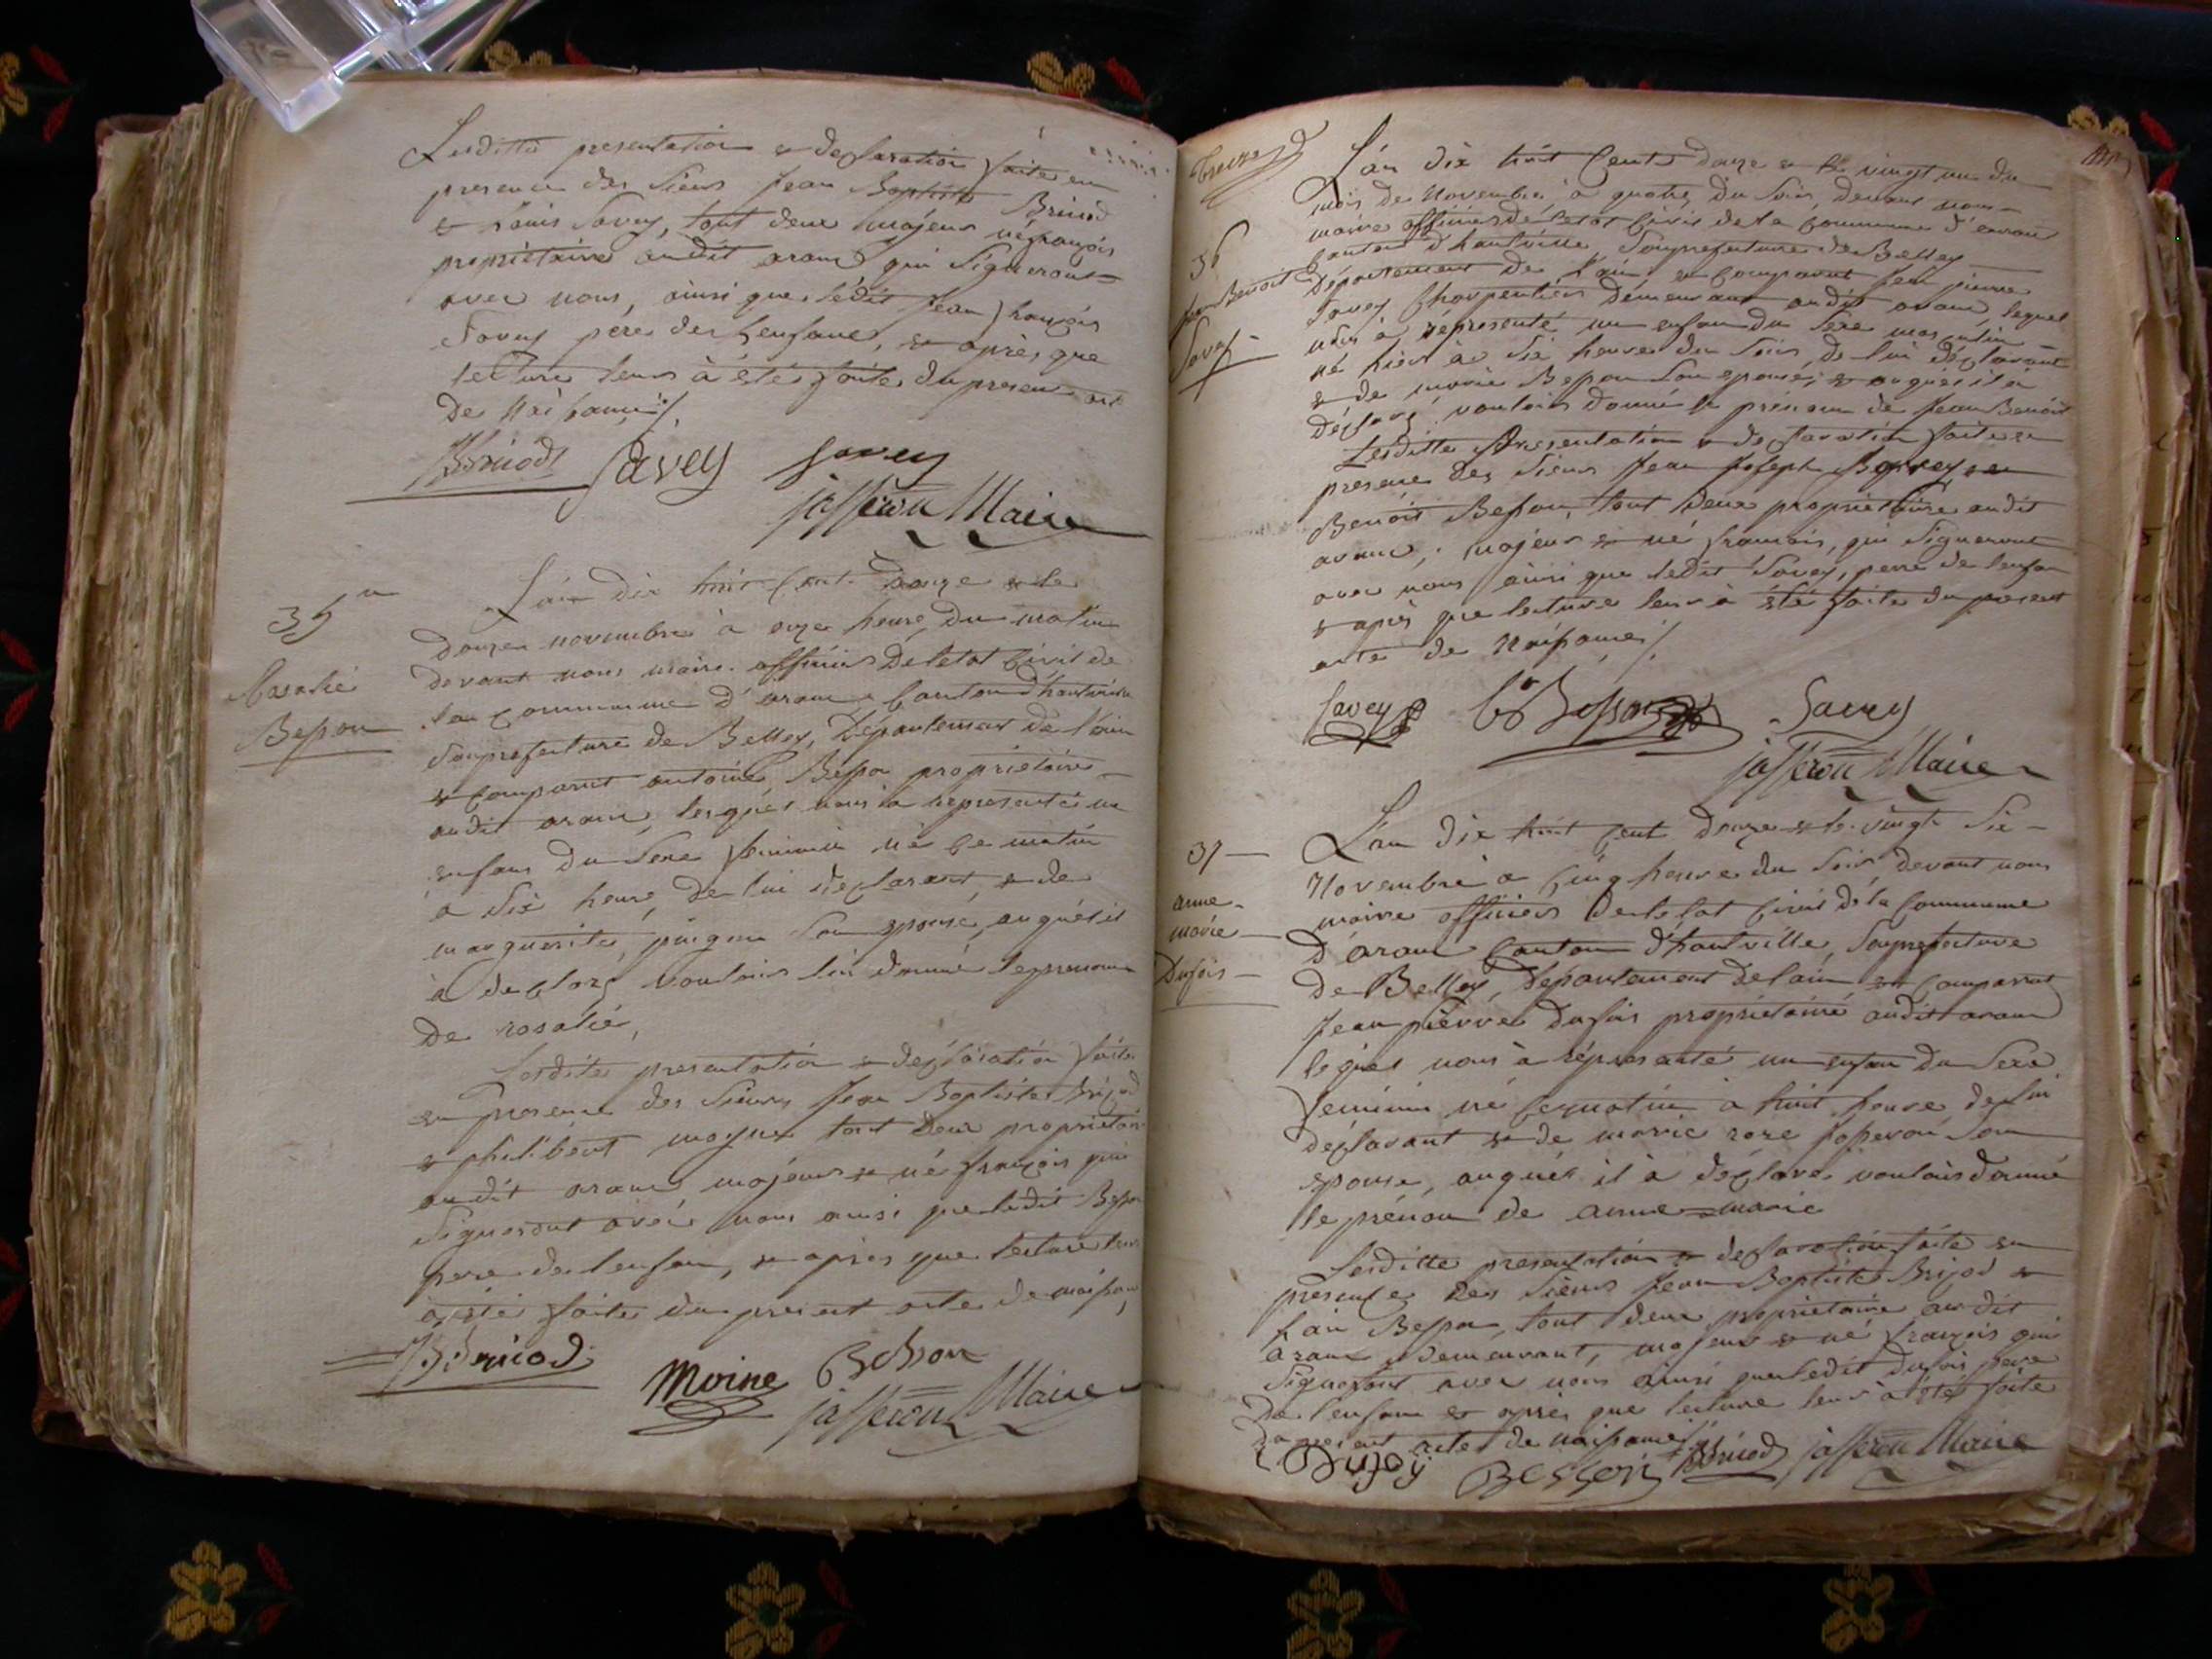 Lesditte presentation & declaration faite en
presence des sieurs Jean Baptiste Brunod
& Louis Savey, tout deux majeur né français
propriétaire audit aranc qui signeront
avec nous, ainsi que ledit Jean françois
Savey père de lenfant, & après que
lecture leurs à été faite du present acte
de naissance
Savey savey
jasseron Maire
35
Rosalie
Besson
L'an dix huit cent douze & le
douze novembre à onze heure, du matin
devant nous maire officier deletat Civil de
la commune d'aranc, Canton d'hauteville
Souprefecture de Belley, Département de l'ain
& comparut antoine Besson propriétaire
audit aranc, lequel nous à representé un
enfant du sexe feminin né ce matin
a six heure, de lui declarant, & de
marguerite son epouse, auquel il
à declaré vouloir lui donné leprenom
de rosalie,
Lesdite presentation & déclaration faite
en presence des sieurs Jean Baptiste
& philibert moyne tout deux propriétaire
audit aranc, majeur & né français qui
signeront avec nous ainsi que ledit Besson
pere de lenfant, & apres que lecture leurs
à été faite du present acte de naissance
Moine Besson
jasseron Maire
treize
L'an dix huit Cent douze & le vingt un du
mois de Novembre à quatre du soir, devant nous
maire officier de letat Civil de la commune d'aranc
Canton d'hauteville, Souprefecture de Belley
36
Jean Benoit
Savey
Département de l'ain, & comparut Jean pierre
Savey Charpentier demeurant audit aranc, lequel
nous à représenté un enfant du sexe masculin
né hier à six heure du soir, de lui déclarant
& de marie Besson son epouse, & auquel il à
déclaré vouloir donné le prénom de Jean Benoit
Lesditte presentation & declaration faite en
presence des sieurs Jean Joseph &
Benoit Besson, tout deux propriétaire audit
aranc, majeur & né français, qui signeront
avec nous ainsi que ledit Savey, pere de lenfan
& après que lecture leur à été faite du present
acte de naissance
Savey Besson Savey
jasseron Maire
37
anne
marie
Dufois
L'an dix huit cent douze & le vingt six
Novembre à cinq heure du soir, devant nous
maire officier de letat Civil de la Commune
d'aranc Canton d'hauteville, Souprefecture
de Belley, Departement de lain, & comparut
Jean pierre Dufois propriétaire audit aranc
lequel nous à réprésenté un enfan du sexe
feminin né ce matin à huit heure, de lui
déclarant & de marie roze jasseron son
epouse, auquel il à déclaré vouloir donné
le prénom de anne marie
Lesditte presentation & declaration faite en
presence des sieurs Jean Baptiste &
Besson, tout deux propriétaire audit
aranc demeurant, majeur & né français qui
signeront avec nous ainsi que ledit Dufois pere
de l'enfant & après que lecture leur à été faite
du present acte de naissance
BESSON jasseron Maire